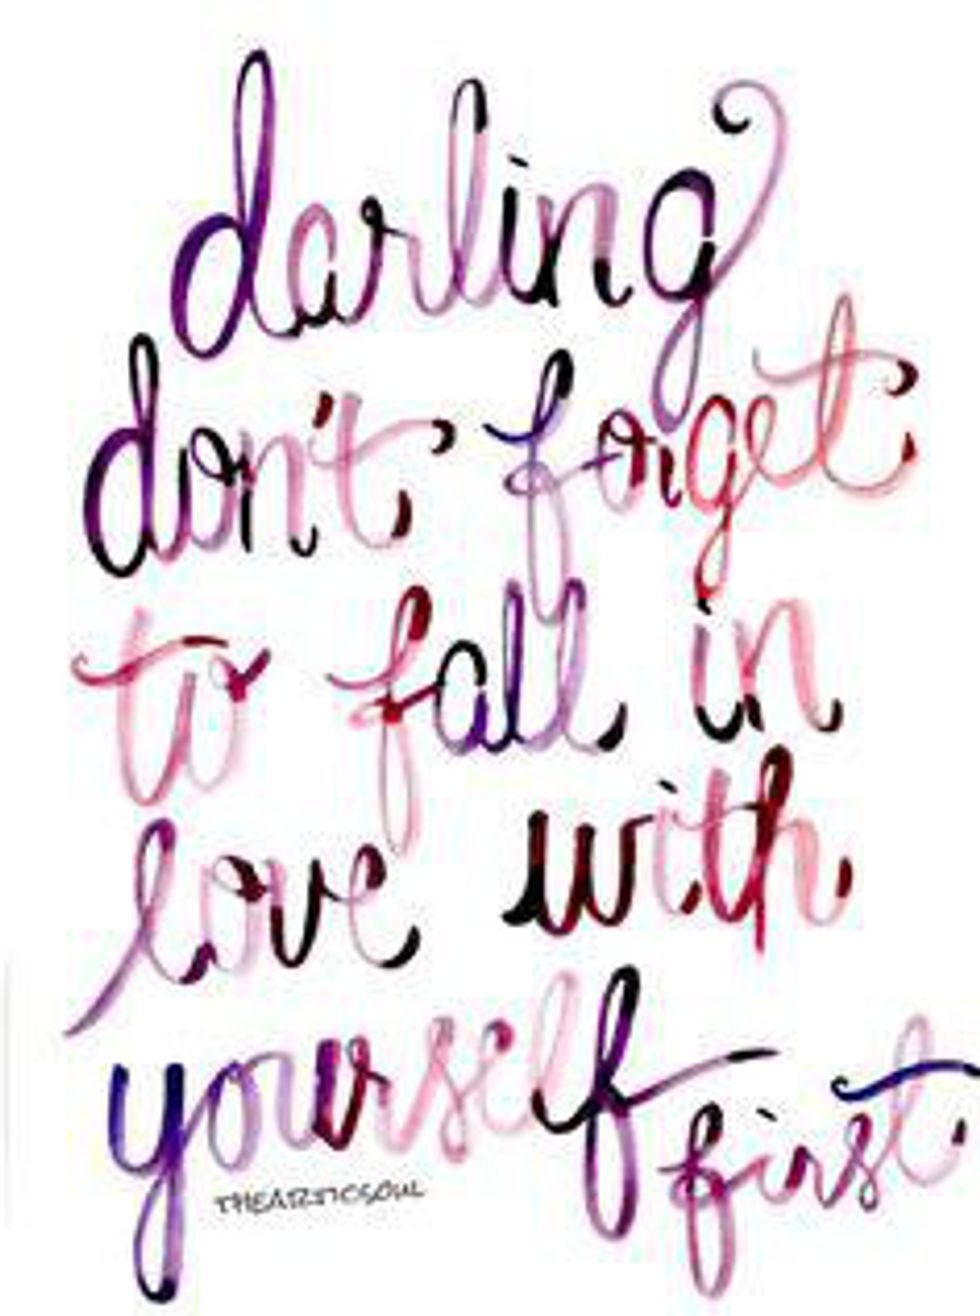 darling
don't forget
to fall in
love with
yourself first
THEARTICSOUL